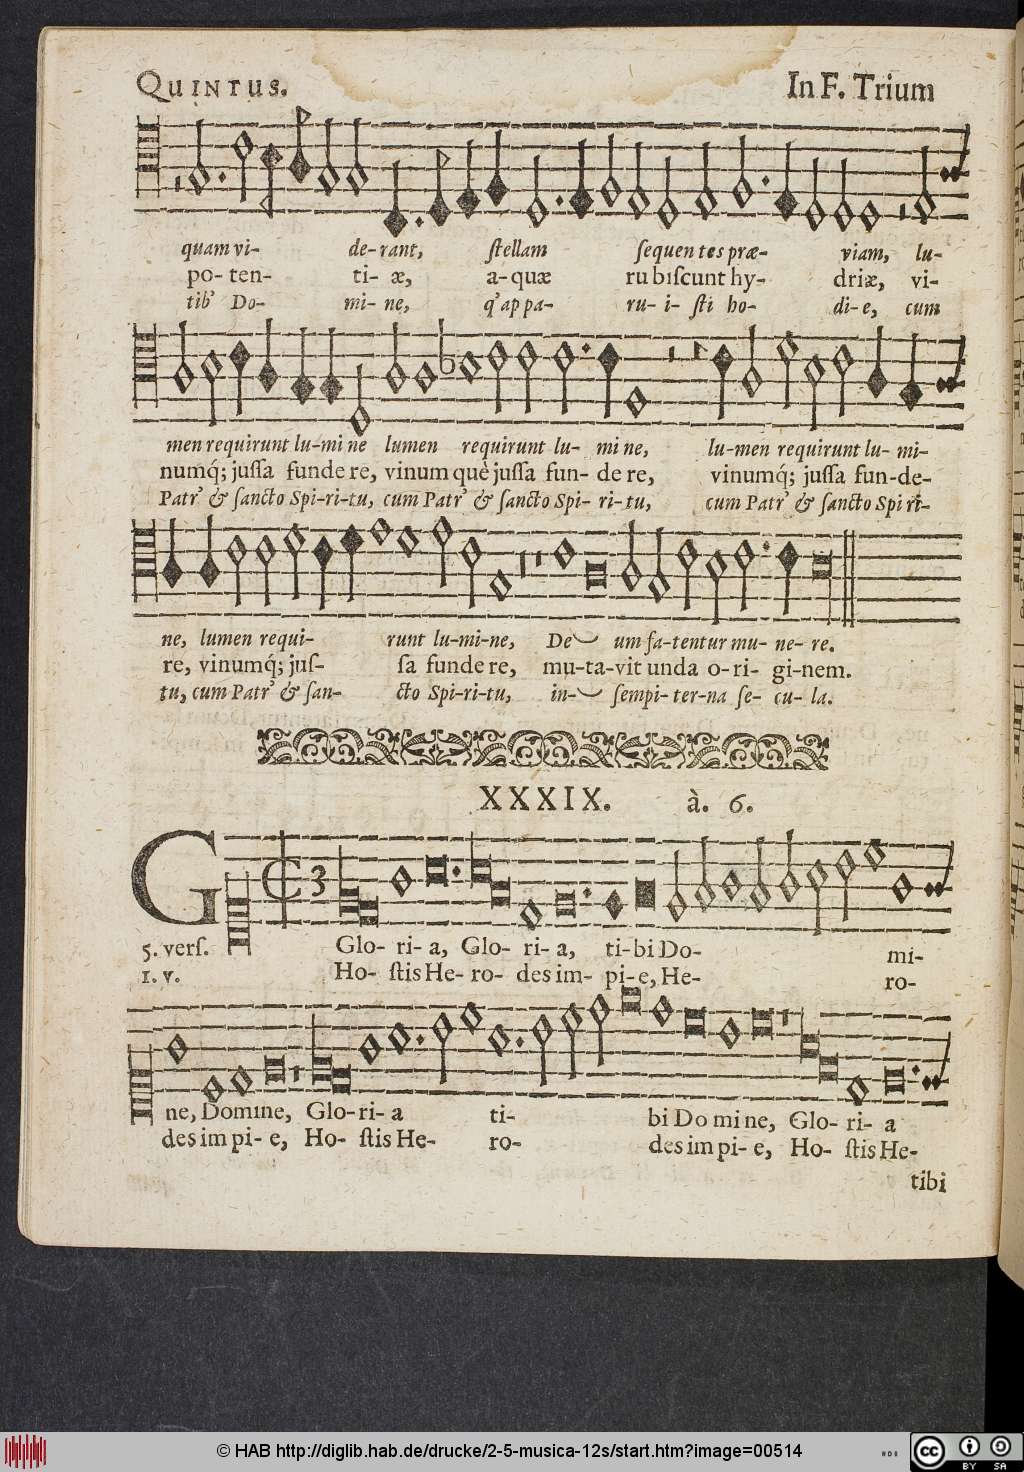 QUINTUS. In F. Trium
quam vi- de-rant, ſtellam ſequen tes præ- viam, lu-
po- ten- ti- æ, a-quæ ru biſcunt hy- driæ, vi-
tib' Do- mi- ne, q' ap pa- ru- i- ſti ho- di-e, cum
men requirunt lu-mi ne lumen requirunt lu- mi ne, lu-men requirunt lu- mi-
numq́; juſſa funde re, vinum què juſſa fun- de re, vinumq́; juſſa fun-de-
Patr' & ſancto Spi-ri-tu, cum Patr' & ſancto Spi- ri-tu, cum Patr' & ſancto Spi ri-
ne, lumen requi- runt lu-mi-ne, De um fa-tentur mu- ne- re.
re, vinumq́; juſ- ſa funde re, mu-ta-vit unda o-ri- gi-nem.
tu, cum Patr' & ſan- cto Spi-ri-tu, in- ſempi-ter-na ſe- cu- la.
XXXIX. à. 6.
G
5. verſ. Glo- ri- a, Glo- ri- a, ti-bi Do- mi-
1. v. Ho- ſtis He- ro- des im- pi-e, He- ro-
ne, Domine, Glo-ri- a ti- bi Do mi ne, Glo- ri- a
des im pi- e, Ho- ſtis He- ro- des im pi- e, Ho- ſtis He-
tibi
© HAB http://diglib.hab.de/drucke/2-5-musica-12s/start.htm?image=00514
cc BY SA